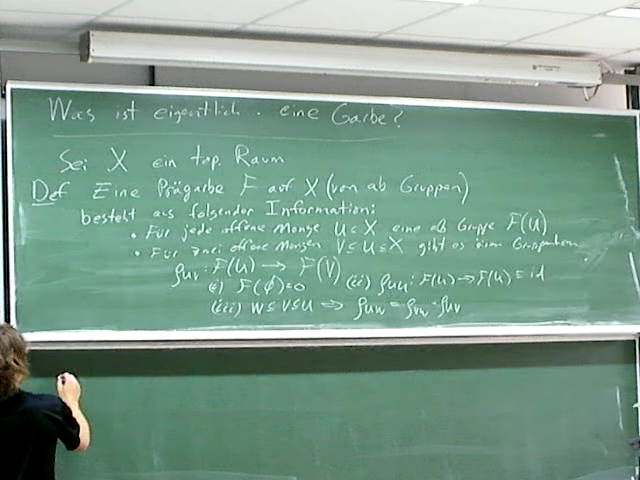 Was ist eigentlich eine Garbe?
Sei X ein top. Raum
Def Eine Prägarbe F auf X (von ab Gruppen)
besteht aus folgender Information:
• Für jede offene Menge U ⊂ X eine ab Gruppe F(U)
• Für zwei offene Mengen V ⊆ U ⊆ X gibt es einen Gruppenhom.
ρ_UV : F(U) → F(V)
(i) F(∅)=0 (ii) ρ_UU : F(U) → F(U) = id
(iii) W ⊆ V ⊆ U ⇒ ρ_UW = ρ_VW ∘ ρ_UV